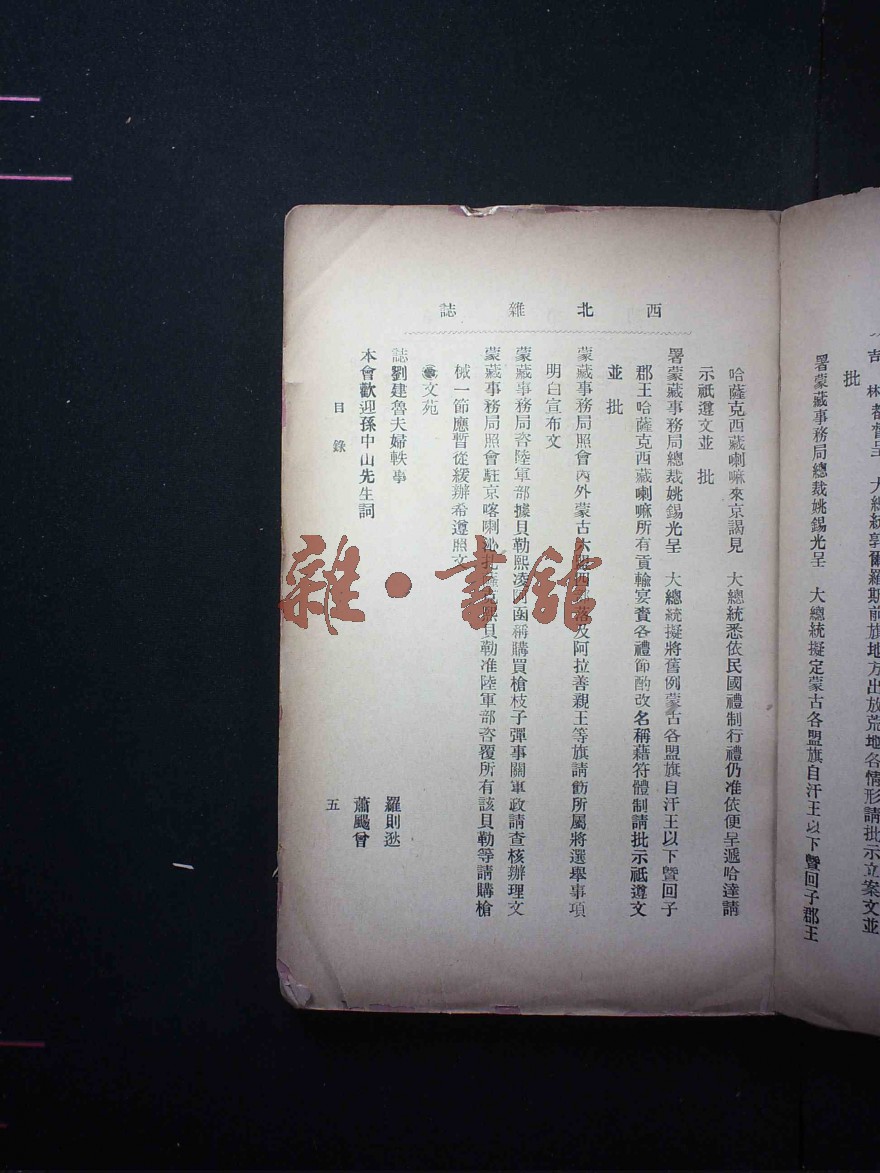 吉林都督呈　大總統郭爾羅斯前旗地方出放荒地各情形請批示立案文並
批
署蒙藏事務局總裁姚錫光呈　大總統擬定蒙古各盟旗自汗王以下暨回子郡王
西北雜誌
哈薩克西藏喇嘛來京謁見　大總統悉依民國禮制行禮仍准依便呈遞哈達請
示祇遵文並　批
署蒙藏事務局總裁姚錫光呈　大總統擬將舊例蒙古各盟旗自汗王以下暨回子
郡王哈薩克西藏喇嘛所有貢輸宴賚各禮節酌改名稱藉符體制請批示祇遵文
並　批
蒙藏事務局照會內外蒙古 西 落及阿拉善親王等旗請飭所屬將選舉事項
明白宣布文
蒙藏事務局咨陸軍部據貝勒熙凌阿函稱購買槍枝子彈事關軍政請查核辦理文
蒙藏事務局照會駐京喀喇沁扎薩克熙貝勒准陸軍部咨覆所有該貝勒等請購槍
械一節應暫從緩辦希遵照文
文苑
誌劉建魯夫婦軼事　羅則逖
本會歡迎孫中山先生詞　蕭颺曾
目錄　五
雜·書館